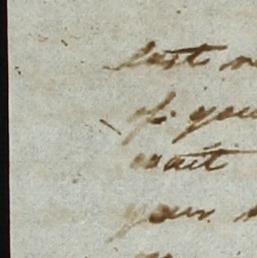 last
of you
wait
your